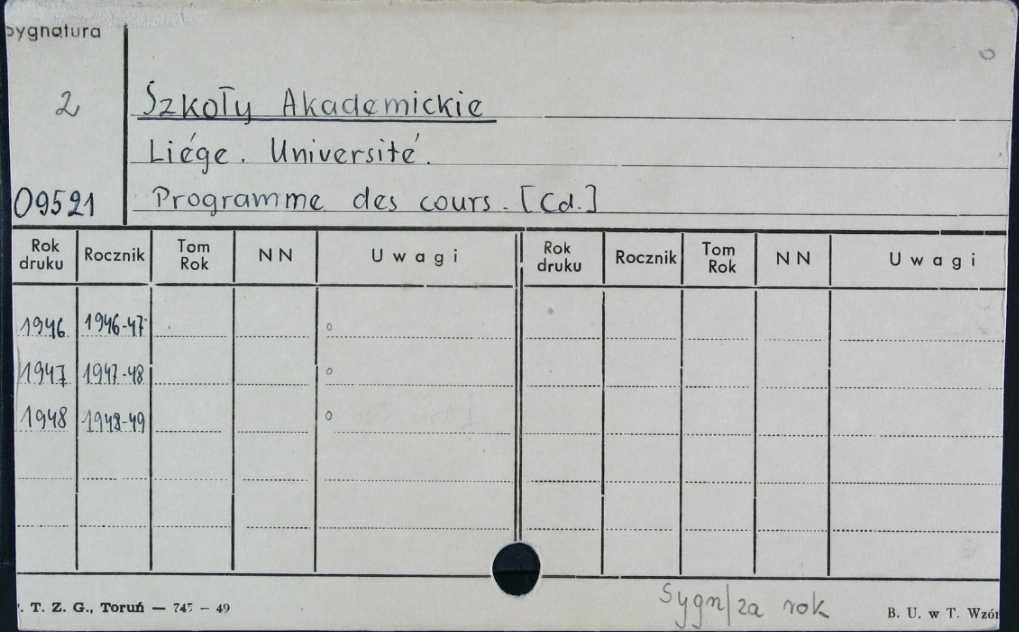 Sygnatura
2
Szkoły Akademickie
Liége. Université.
09521
Programme des cours. [Cd.]
Rok druku Rocznik Tom Rok NN Uwagi Rok druku Rocznik Tom Rok NN Uwagi
1946 1946-47
1947 1947-48
1948 1948-49
Sygn/za rok
. T. Z. G., Toruń — 745 — 49
B. U. w T. Wzór